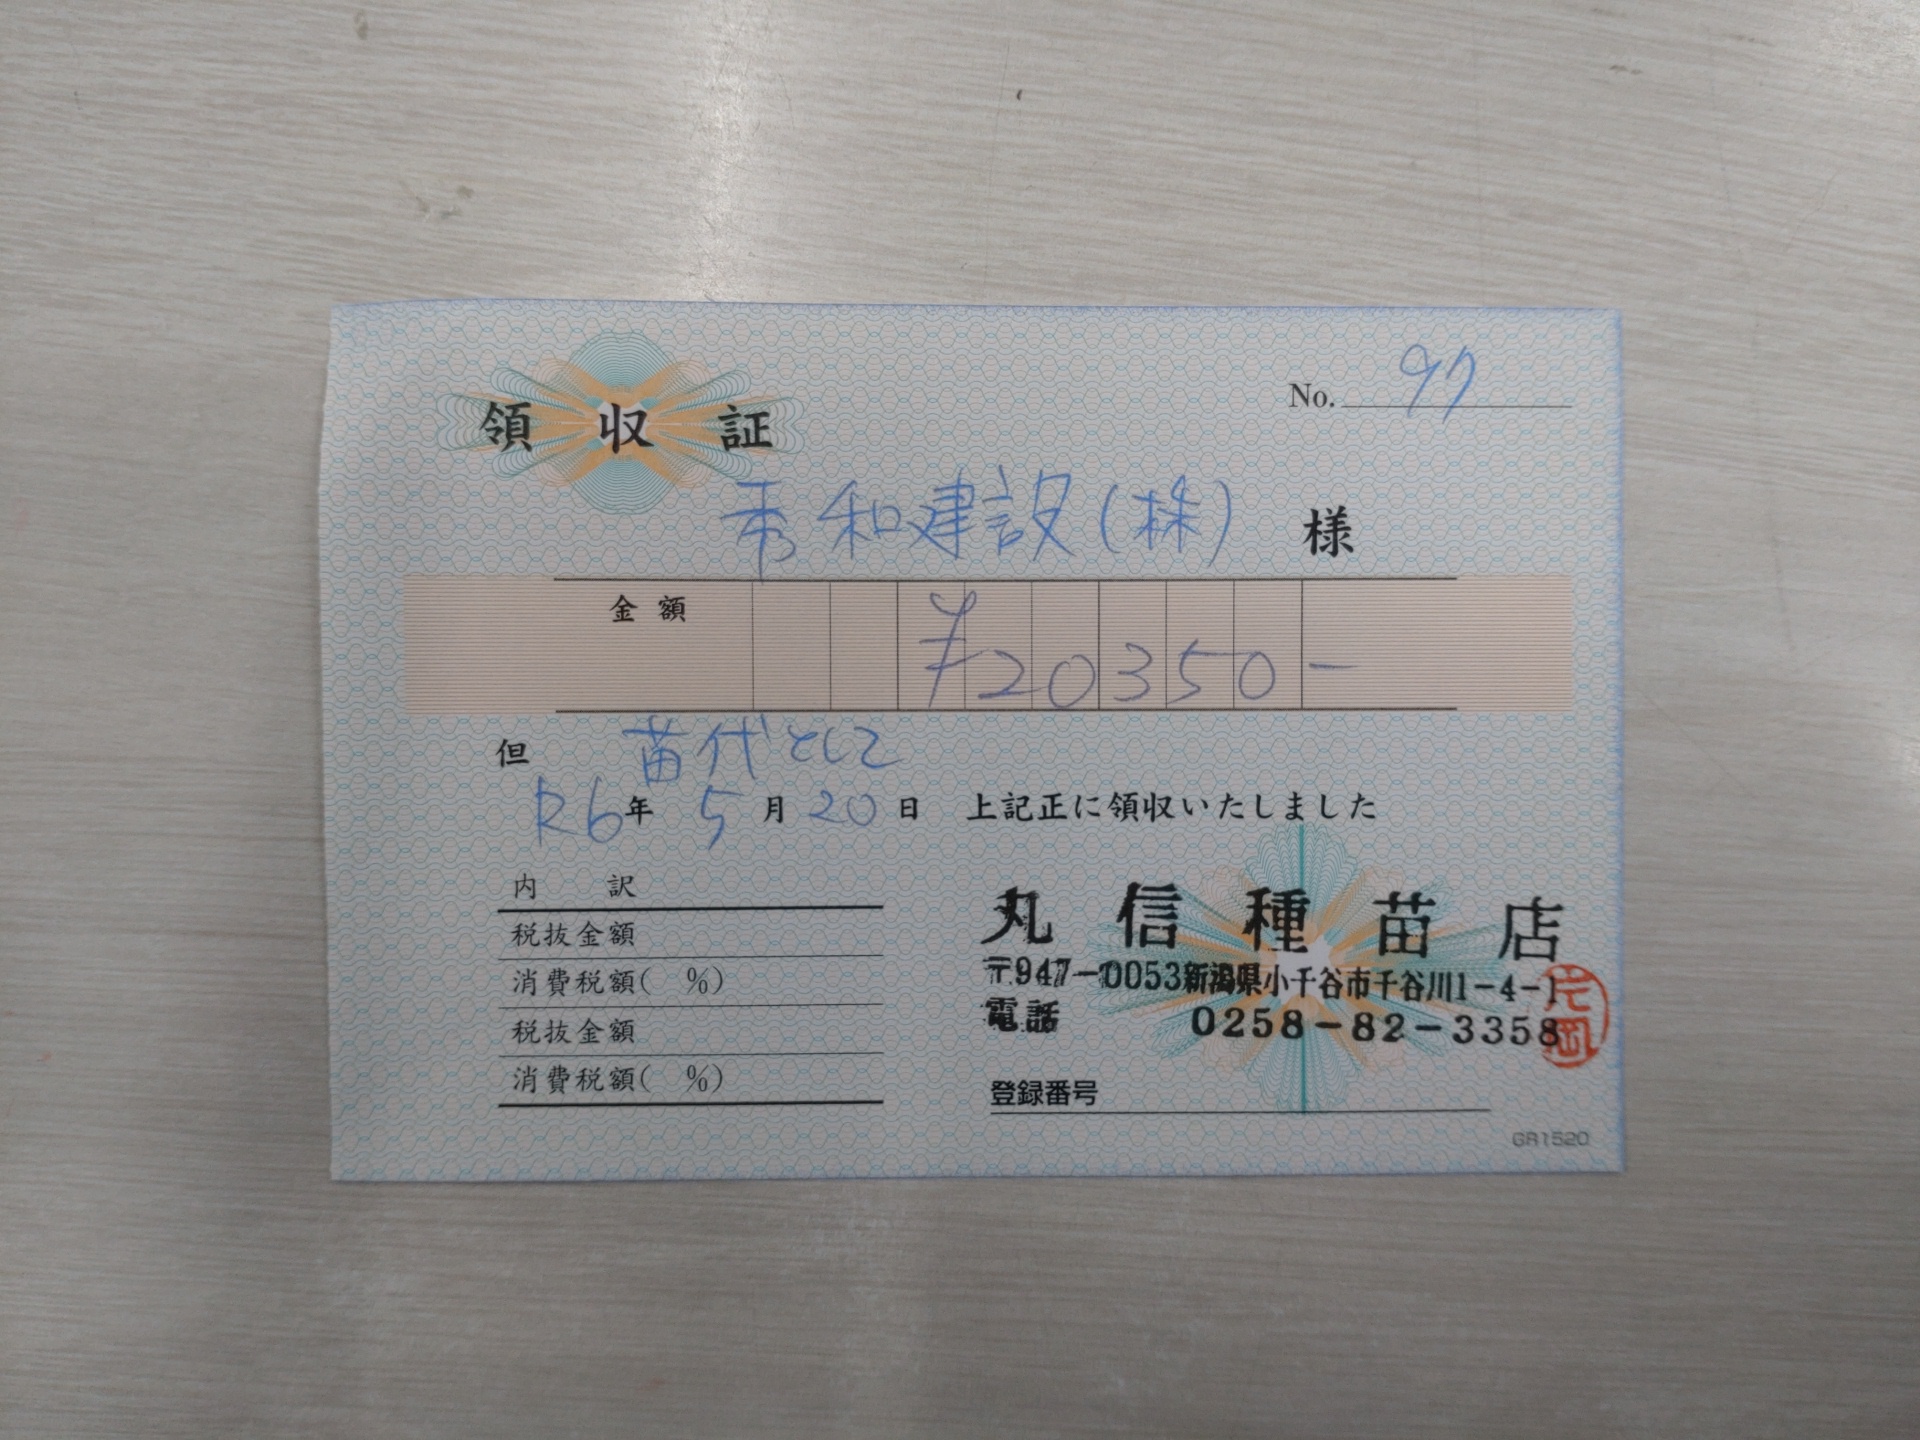 領収証
No. 97
秀和建設(株) 様
金額 ¥20350-
但 苗代として
R6年5月20日 上記正に領収いたしました
内訳
税抜金額
消費税額( %)
税抜金額
消費税額( %)
丸信種苗店
〒947-0053新潟県小千谷市千谷川1-4-1
電話 0258-82-3358
登録番号
GR1520